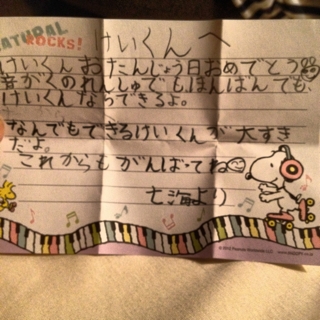 NATURAL
ROCKS!
けいくんへ
けいくんおたんじょう日おめでとう
音がくのれんしゅでもほんばんでも、
けいくんならできるよ。
なんでもできるけいくんが大すき
だよ。
これからもがんばってね
七海より